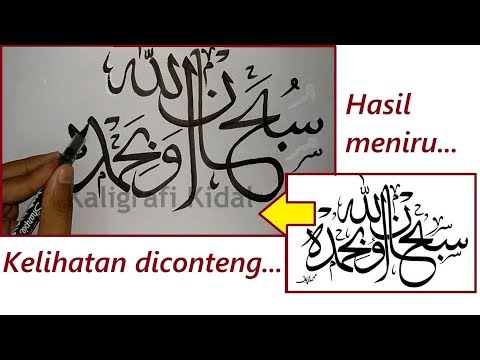 سُبْحَانَ اللهِ وَبِحَمْدِهِ
Kaligrafi Kidal
Hasil
meniru...
سبحان الله وبحمده
Kelihatan diconteng...